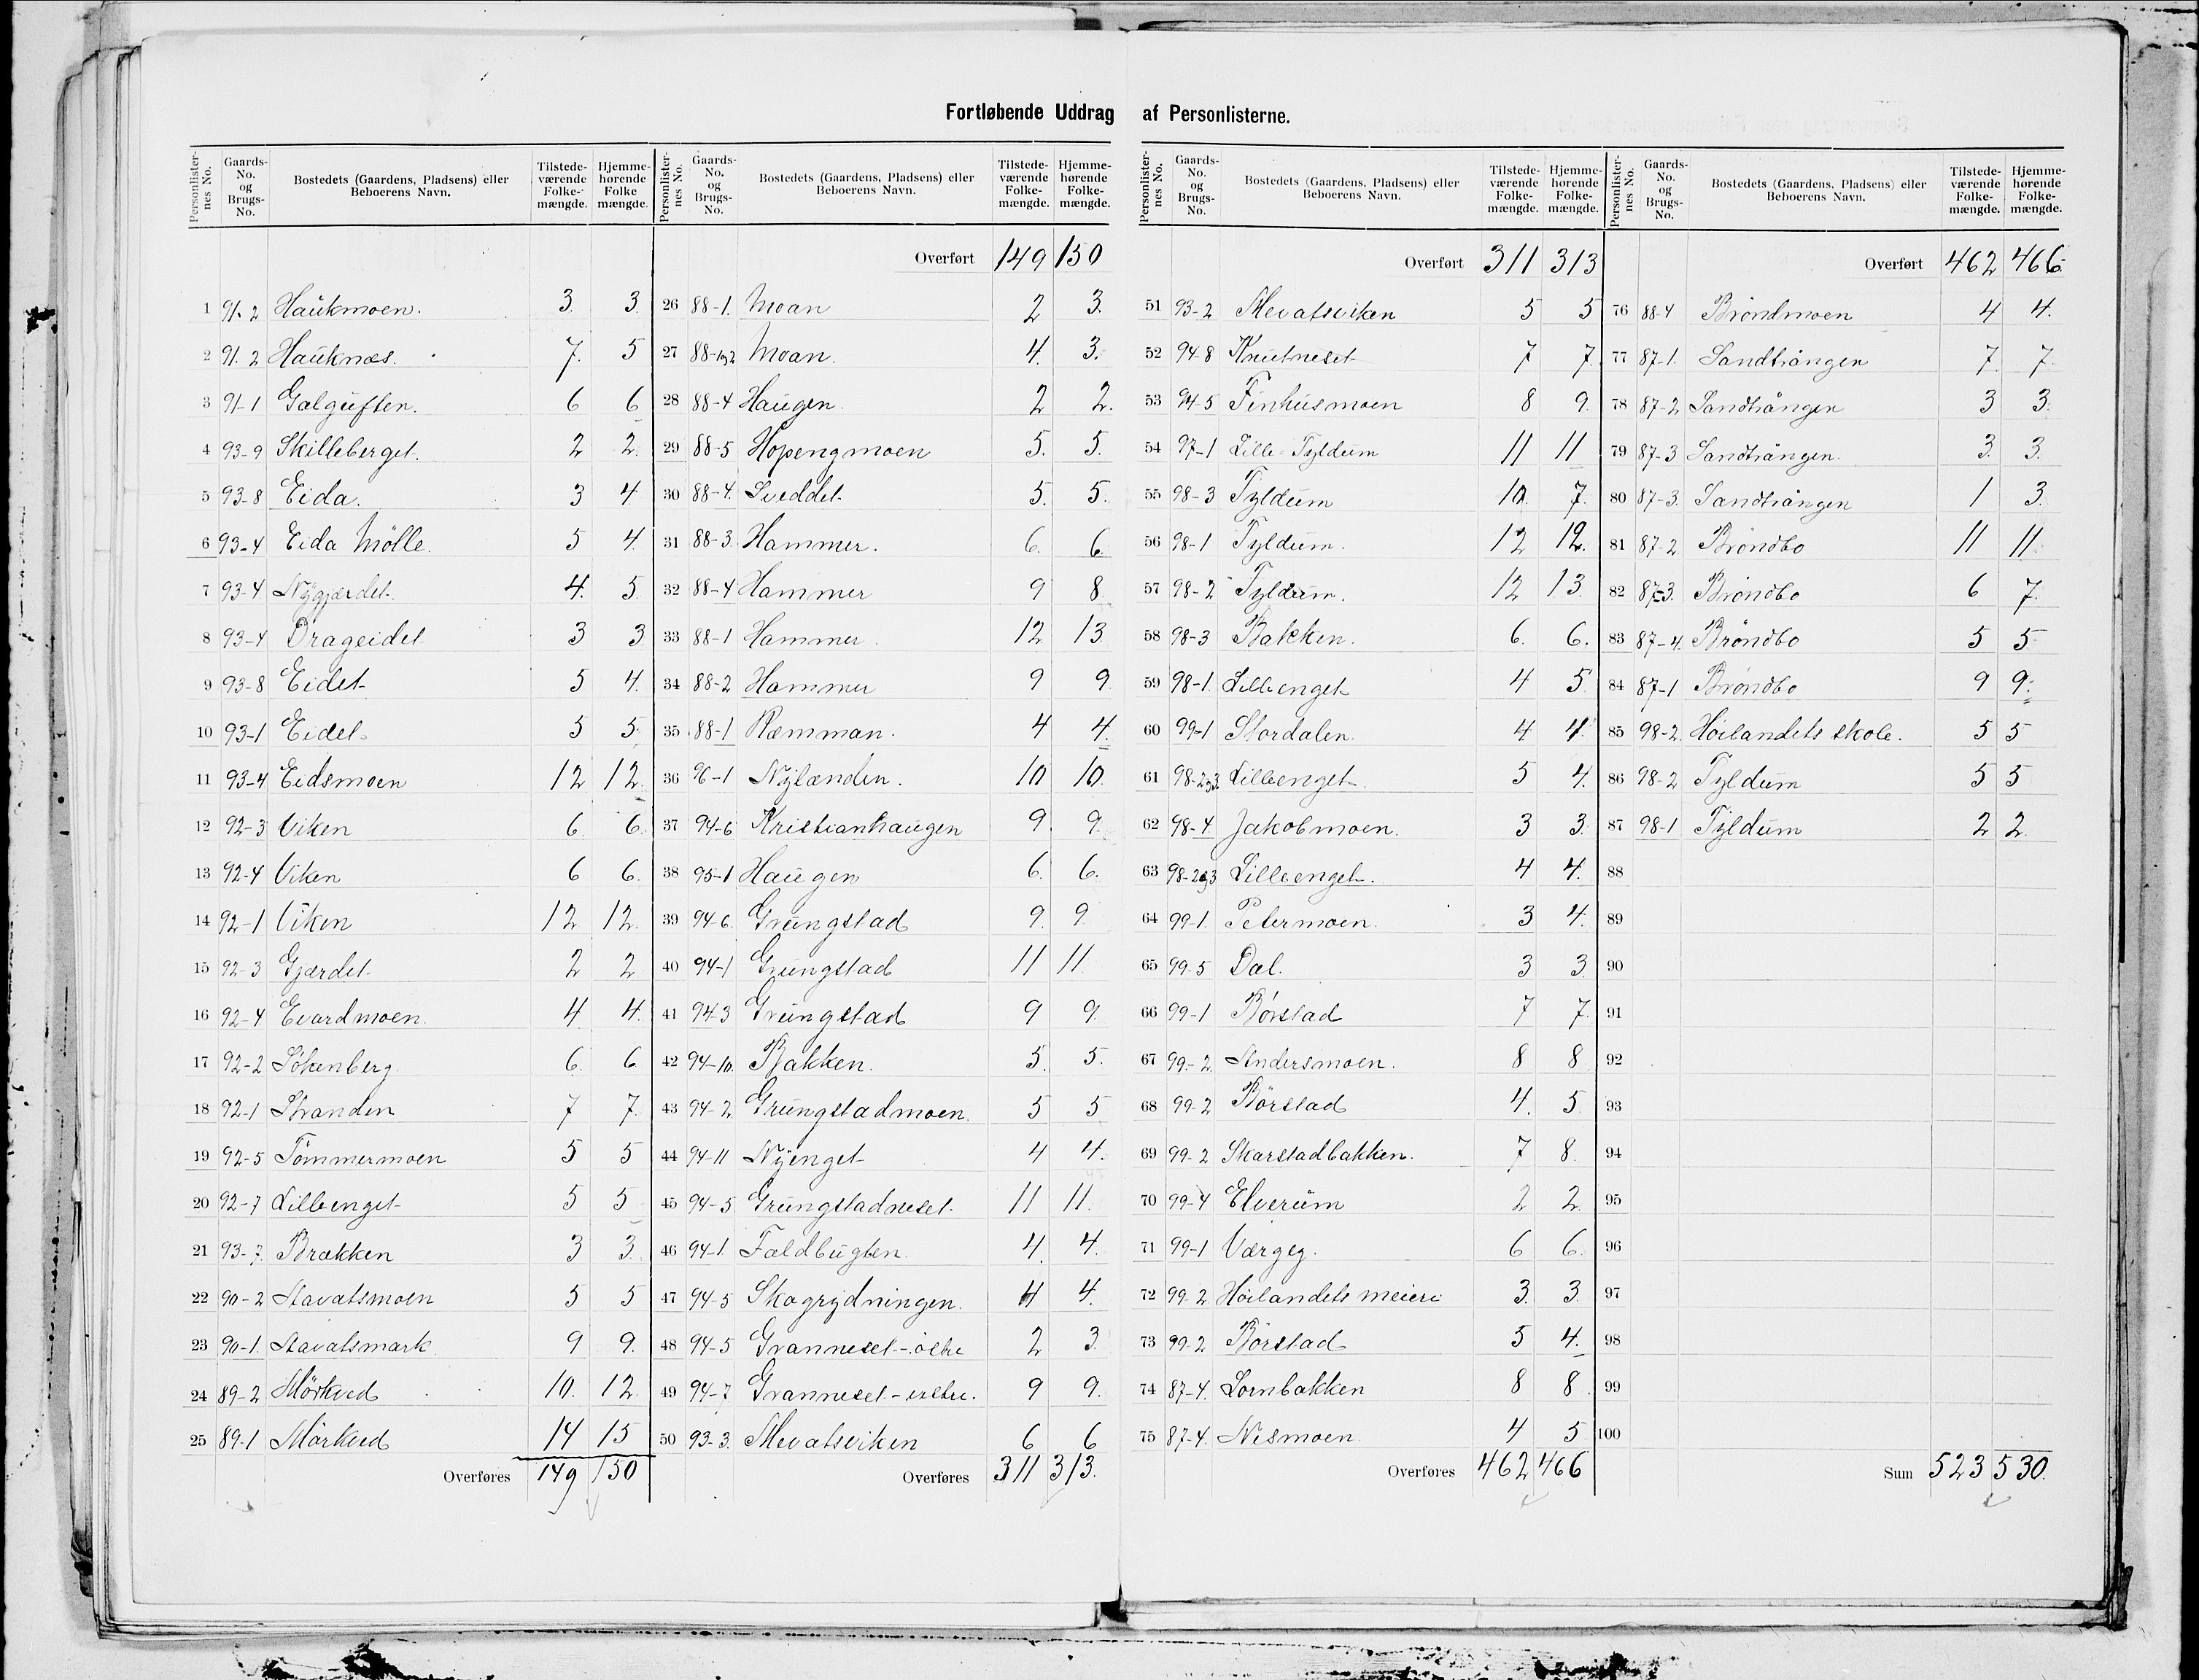 Fortløbende Uddrag af Personlisterne.
Personlisternes No. Gaards-No. og Brugs-No. Bostedets (Gaardens, Pladsens) eller Beboerens Navn. Tilstedeværende Folkemængde. Hjemmehørende Folkemængde.
1 91-2 Haukmoen. 3 3
2 91-2 Hauknæs. 7. 5
3 91-1 Galguften. 6 6
4 93-9 Skilleberget. 2 2
5 93-8 Eida. 3 4
6 93-4 Eida Mölle. 5 4
7 93-4 Nygjærdet. 4. 5
8 93-4 Drageidet 3 3
9 93-8 Eidet 5 4.
10 93-1 Eidet 5 5
11 93-4 Eidsmoen 12 12
12 92-3 Viken 6 6.
13 92-4 Viken 6 6.
14 92-1 Viken 12 12.
15 92-3 Gjærdet 2 2
16 92-4 Evardmoen 4 4.
17 92-2 Söhenberg 6. 6
18 92-1 Stranden 7 7.
19 92-5 Tömmermoen 5 5
20 92-7 Lilleenget 5 5
21 93-7. Brækken 3 3.
22 90-2 Aavatsmoen 5 5
23 90-1. Aavatsmark 9 9.
24 89-2 Mörkved 10. 12
25 89-1 Mörkved 14 15
Overføres 149 150
Overført 149 150
26 88-1. Moan 2 3.
27 88-1og2 Moan. 4. 3.
28 88-4 Haugen. 2 2.
29 88-5 Hopengmoen 5. 5.
30 88-4. Sveddet 5. 5.
31 88-3. Hammer. 6. 6.
32 88-4 Hammer 9 8.
33 88-1 Hammer 12 13
34 88-2 Hammer 9 9
35 88-1 Ræmman. 4 4.
36 96-1 Nylænden. 10 10.
37 94-6 Kristianhaugen 9 9.
38 95-1 Haugen 6. 6.
39 94-6. Grungstad 9. 9
40 94-1 Grungstad 11 11
41 94-3 Grungstad 9 9.
42 94-10. Bakken. 5. 5.
43 94-2 Grungstadmoen. 5 5
44 94-11 Nyenget 4 4.
45 94-5 Grungstadneset. 11 11.
46 94-1 Faldbugten. 4. 4.
47 94-5 Skogrydningen. 4 4.
48 94-5 Granneset-östre 2 3.
49 94-7 Granneset-vestre. 9 9.
50 93-3. Mevatsviken 6 6
Overføres 311 313.
Overført 311 313
51 93-2 Mevatsviken 5 5
52 94-8 Knutneset 7 7.
53 94-5 Finhusmoen 8 9.
54 97-1 Lille-Tyldum 11 11
55 98-3 Tyldum 10. 7.
56 98-1 Tyldum. 12 12.
57 98-2 Tyldum. 12 13.
58 98-3 Bakken. 6. 6.
59 98-1. Lilleenget 4 5
60 99-1 Stordalen. 4 4.
61 98-2og3 Lilleenget. 5 4.
62 98-4 Jakobmoen. 3 3.
63 98-2og3 Lilleenget. 4 4.
64 99-1. Petermoen. 3 4.
65 99-5 Dal. 3 3.
66 99-1 Börstad 7 7.
67 99-2. Andersmoen. 8 8
68 99-2 Börstad 4. 5
69 99-2 Skarstadbakken. 7 8.
70 99-4 Elverum 2 2.
71 99-1 Værgeg. 6 6.
72 99-2. Höilandets meieri 3. 3.
73 99-2 Börstad 5 4.
74 87-4. Lornbakken 8 8.
75 87-4. Nesmoen 4 5
Overføres 462 466
Overført 462 466
76 88-4 Bröndmoen 4 4.
77 87-1. Sandtrången 7. 7.
78 87-2 Sandtrången 3 3.
79 87-3 Sandtrången. 3. 3.
80 87-3. Sandtrången 1 3.
81 87-2. Bröndbo 11 11.
82 87-3. Bröndbo 6 7.
83 87-4. Bröndbo 5 5
84 87-1 Bröndbo 9 9.
85 98-2. Höilandets skole. 5 5
86 98-2 Tyldum 5 5
87 98-1 Tyldum 2 2.
88
89
90
91
92
93
94
95
96
97
98
99
100
Sum 523 530.